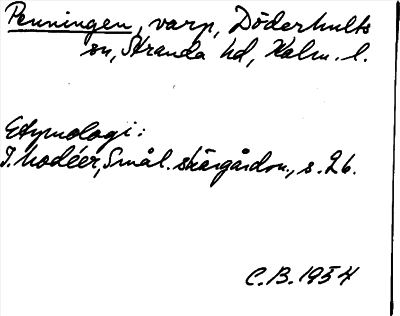 Penningen, varp, Döderhults
sn, Stranda hd, Kalm. l.
Etymologi:
I. Modéer, Smål. skärgårdsn., s. 26.
C.B. 1954